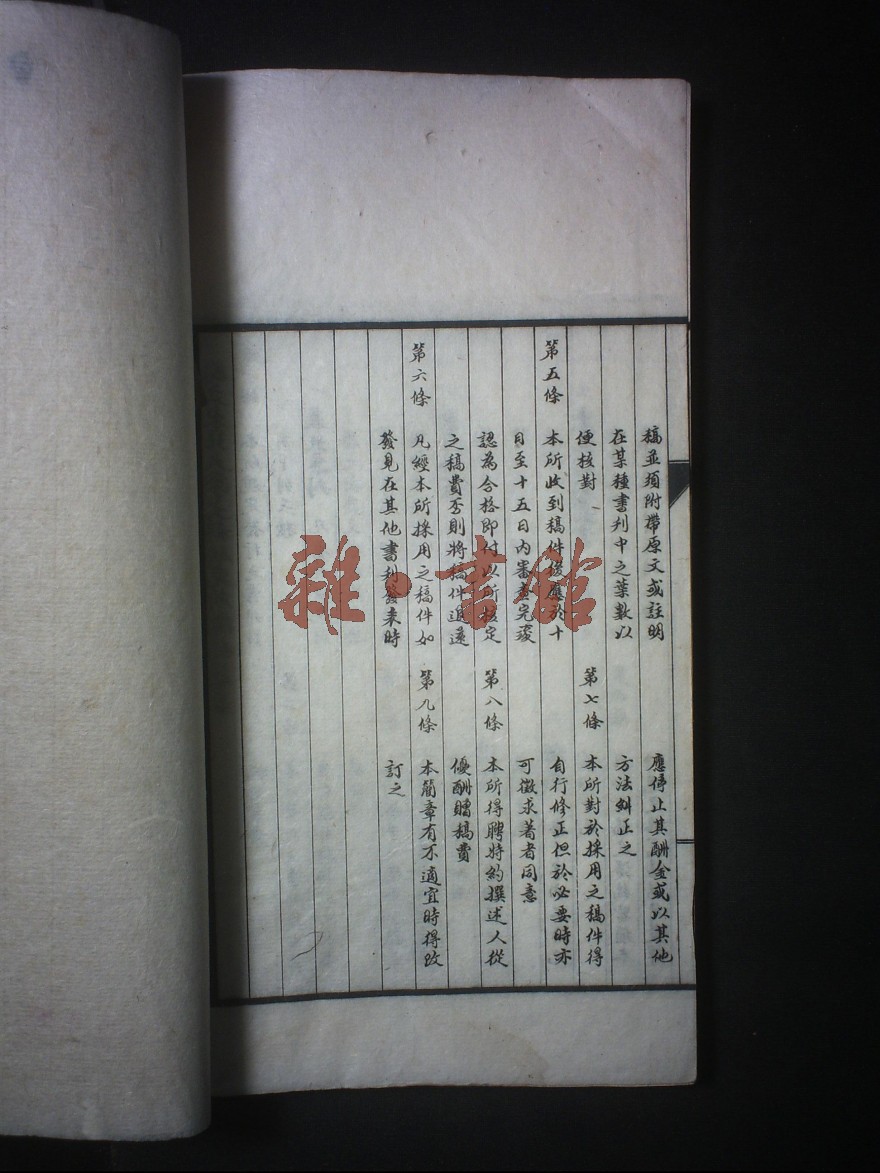 稿並須附帶原文或註明
在某種書刋中之葉數以
便核對
第五條 本所收到稿件後應於十
日至十五日內審查完竣
認為合格即付以所核定
之稿費否則將稿件退還
第六條 凡經本所採用之稿件如
發見在其他書刋發表時
應停止其酬金或以其他
方法糾正之
第七條 本所對於採用之稿件得
自行修正但於必要時亦
可徵求著者同意
第八條 本所得聘特約撰述人從
優酬贈稿費
第九條 本簡章有不適宜時得改
訂之
雜·書館